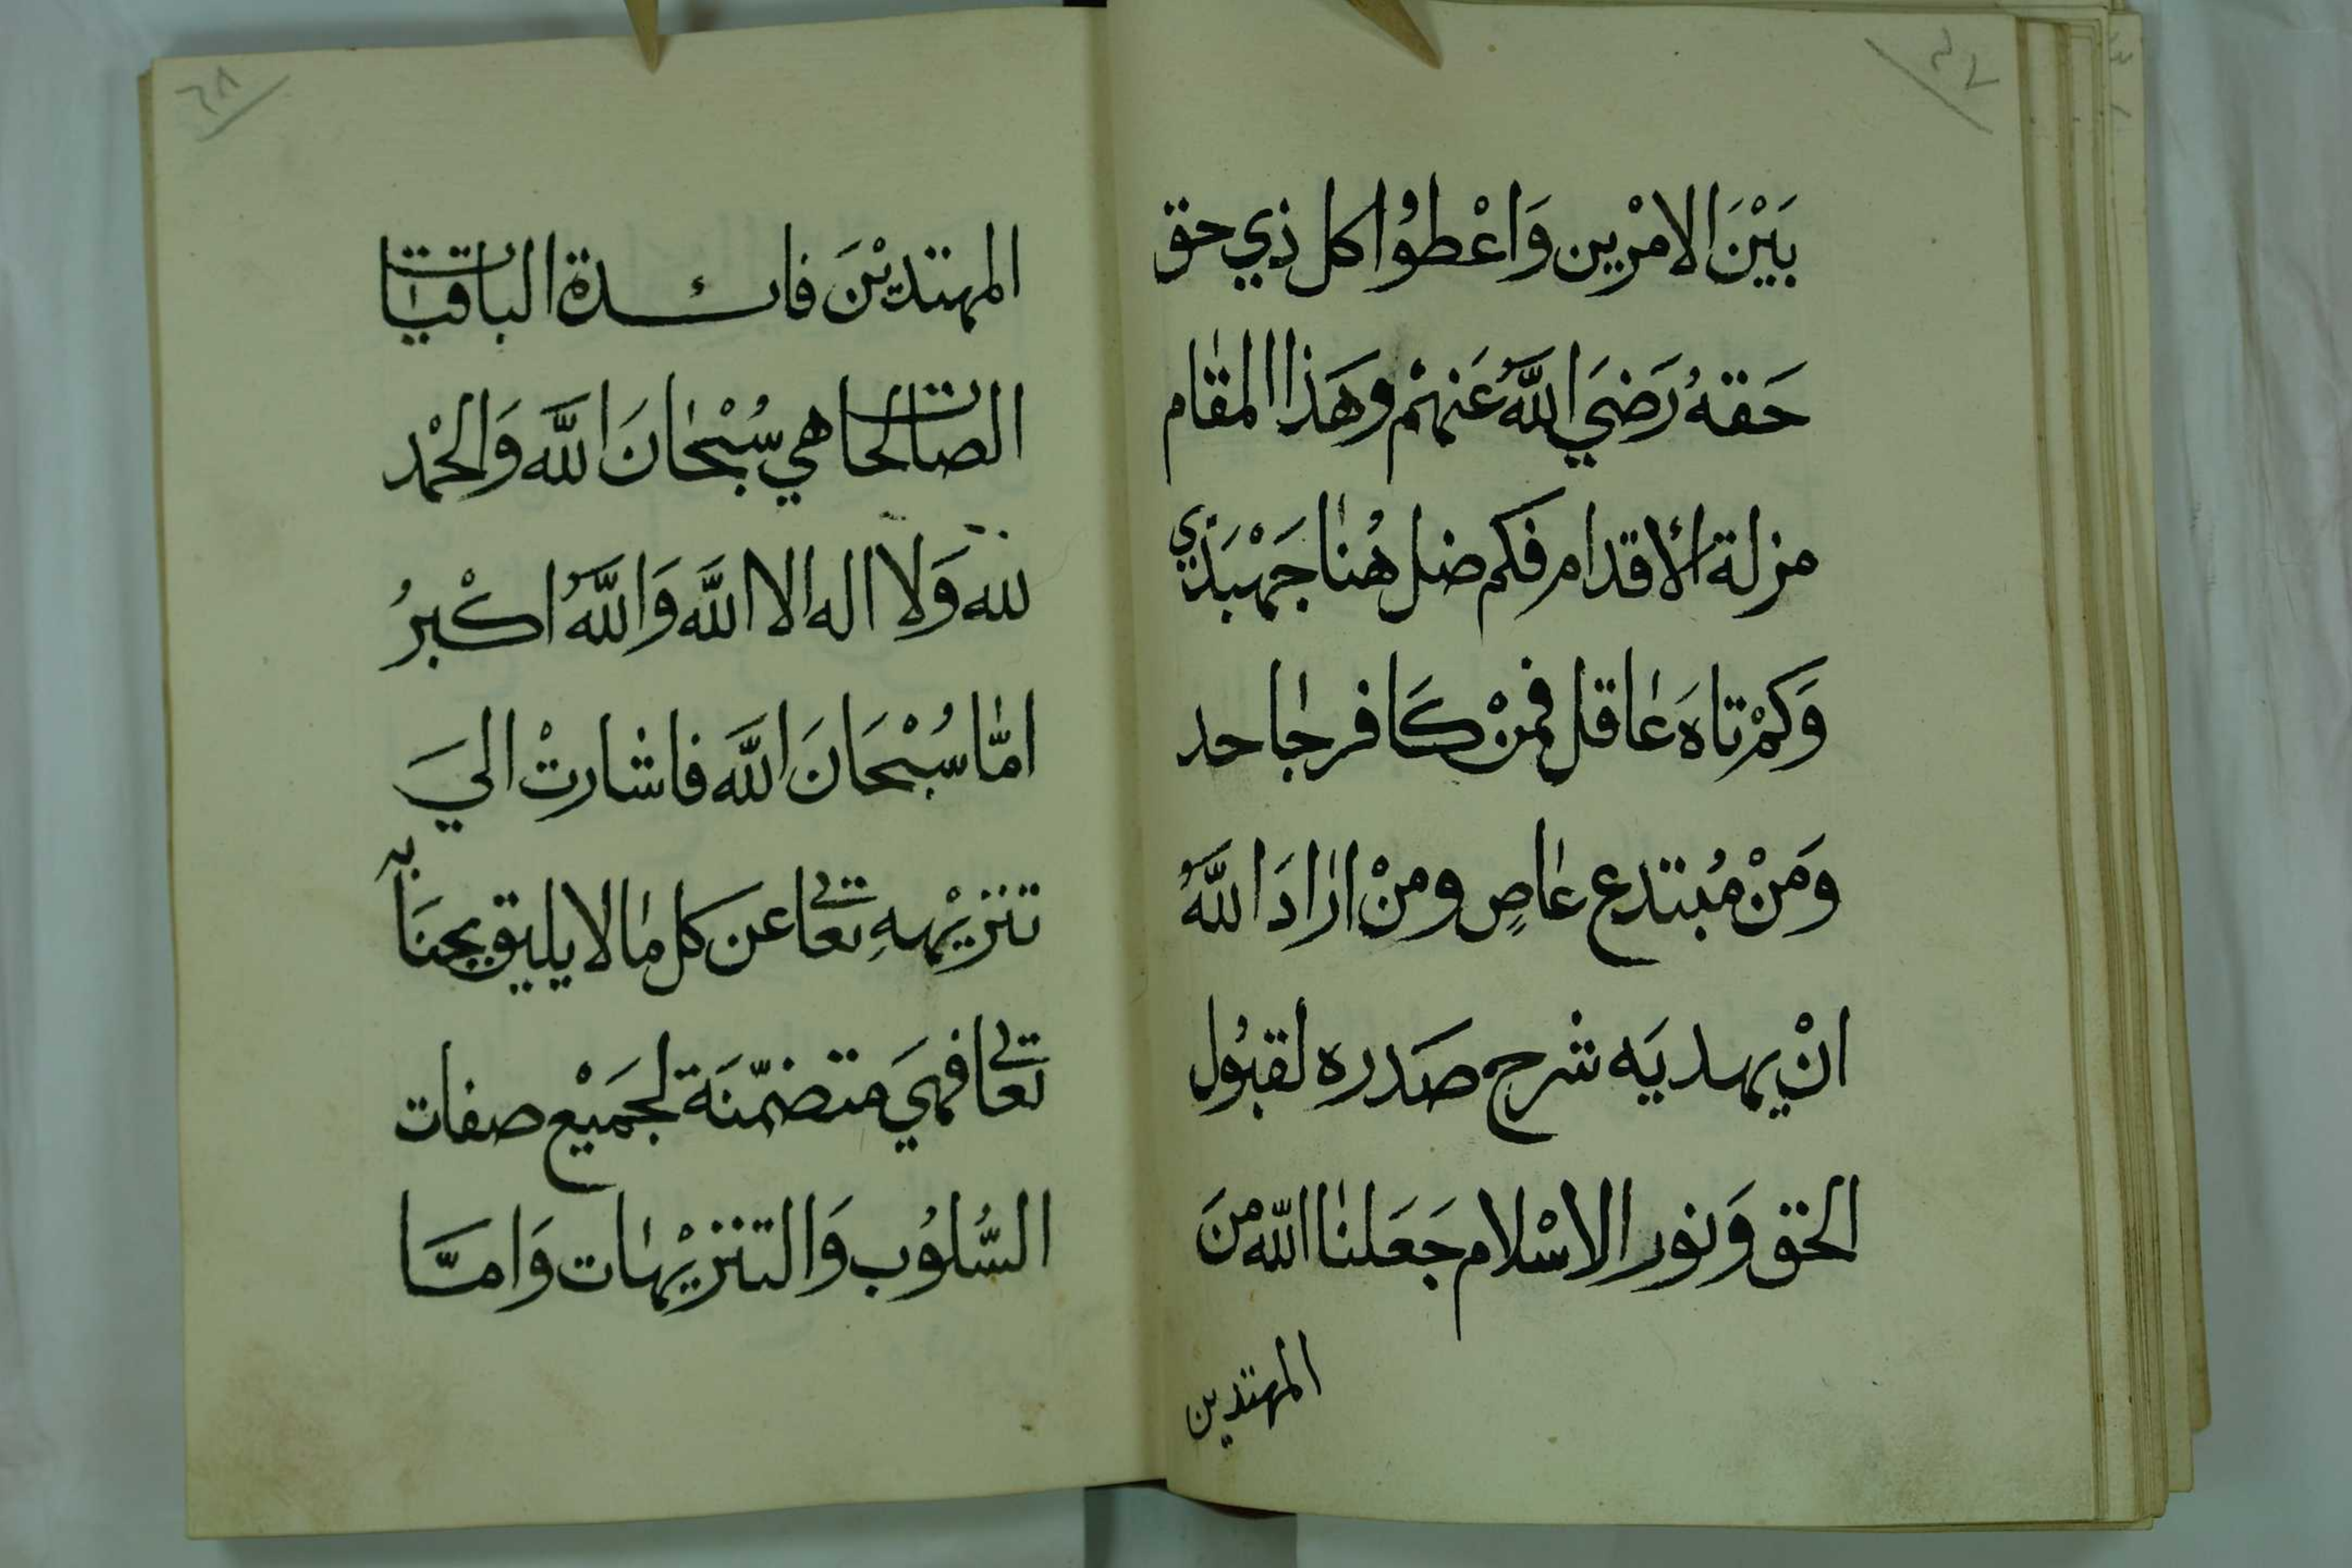 ٢٧
بَيْنَ الامْرين وَاعْطوُا كل ذي حق
حَقهُ رَضيَ اللَّهُ عَنهمْ وهَذا المقام
مزلة الأقدام فكم ضل هُنا جَهْبَذي
وَكمْ تاهَ عاقل فمنْ كَافر جاحد
ومَنْ مُبتدع عاصٍ ومنْ ارادَ اللَّهُ
انْ يهديَه شرح صَدره لقبُول
الحق وَنور الاسْلام جَعَلنا اللّه منَ
المهتدين
٢٨
المهتديْنَ فائدة الباقيات
الصالحات هي سُبْحانَ اللَّه وَالحْمد
لله وَلا اله الا اللَّه وَاللَّهُ اكْبرُ
امّا سُبْحَانَ اللَّه فاشارتْ اليَ
تنزيْههِ تعالى عن كل ما لا يليق بجنَابه
تعالى فهيَ متضمّنَة لجَميْع صفات
السُّلوُب وَالتنزيْهات وَامَّا